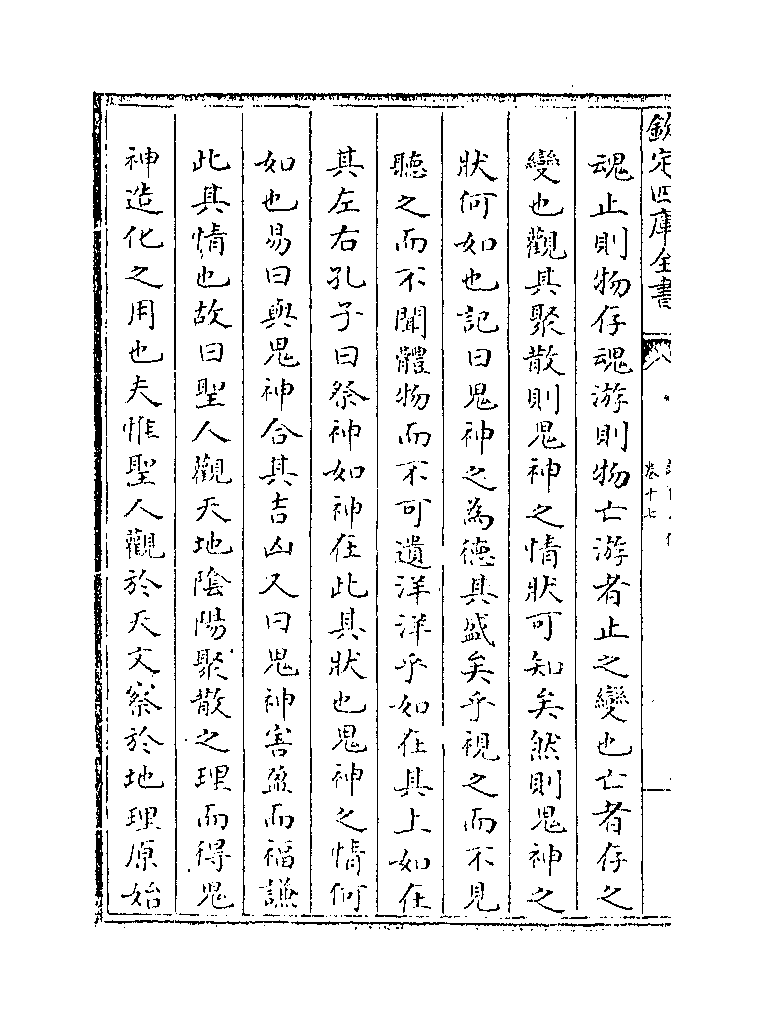 欽定四庫全書
卷十七
魂止則物存魂游則物亡游者止之變也亡者存之
變也觀其聚散則鬼神之情狀可知矣然則鬼神之
狀何如也記曰鬼神之為德其盛矣乎視之而不見
聽之而不聞體物而不可遺洋洋乎如在其上如在
其左右孔子曰祭神如神在此其狀也鬼神之情何
如也易曰與鬼神合其吉凶又曰鬼神害盈而福謙
此其情也故曰聖人觀天地陰陽聚散之理而得鬼
神造化之用也夫惟聖人觀於天文察於地理原始